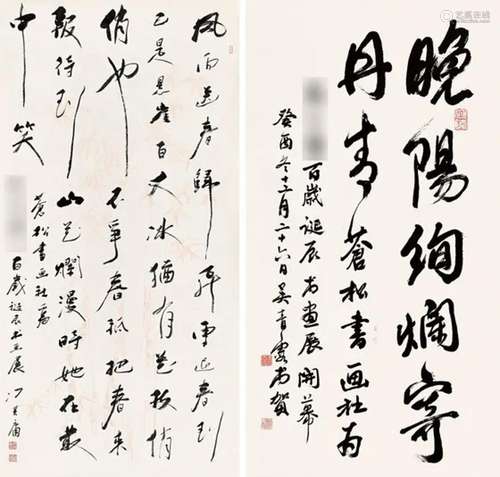 風雨送春歸飛雪迎春到
已是悬崖百丈冰猶有花枝俏
俏也不爭春祇把春來
報待到山花爛漫時她在丛
中笑
蒼松書画社為
百歲誕辰
晚陽絢爛寄
丹青蒼松書画社为
百歲誕辰书画展開幕
癸酉冬十二月二十六日吴青霞书贺